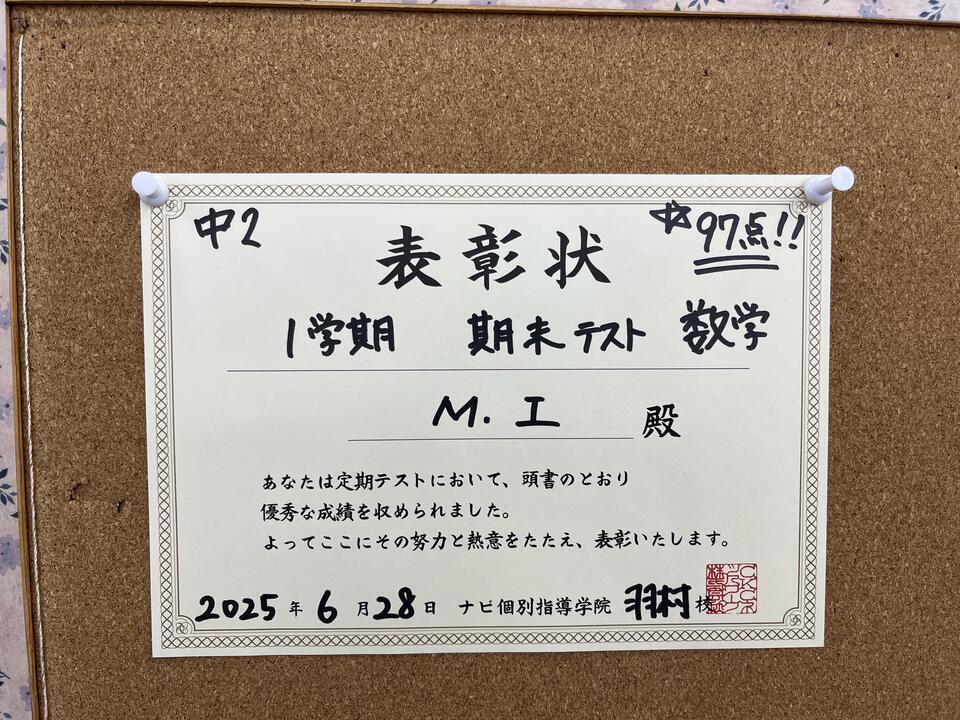 中2
☆97点!!
表彰状
1学期 期末テスト 数学
M. I 殿
あなたは定期テストにおいて、頭書のとおり
優秀な成績を収められました。
よってここにその努力と熱意をたたえ、表彰いたします。
2025年6月28日 ナビ個別指導学院 羽村校